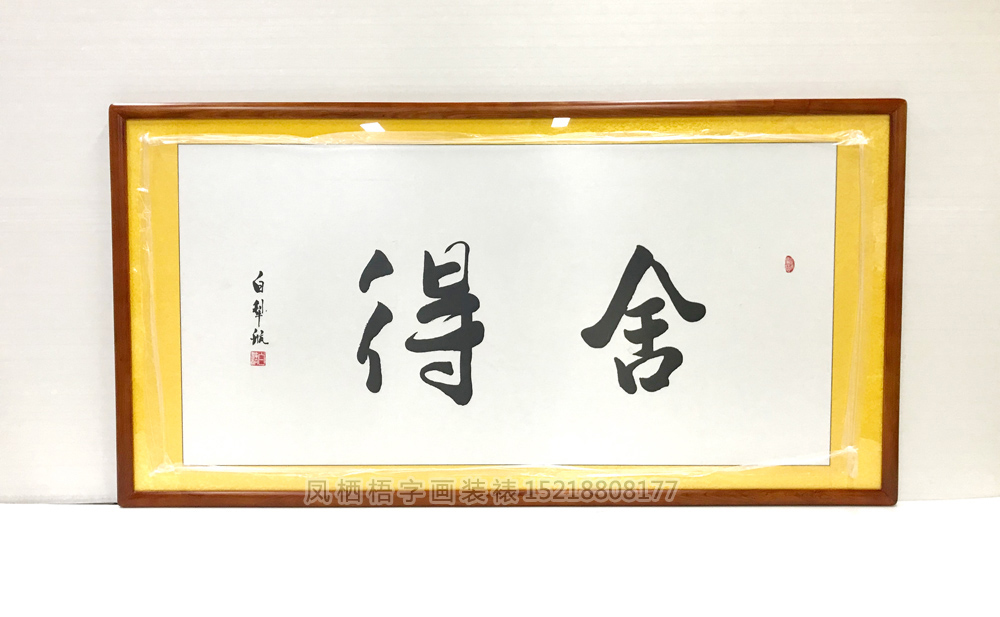 舍得
凤栖梧字画装裱15218808177